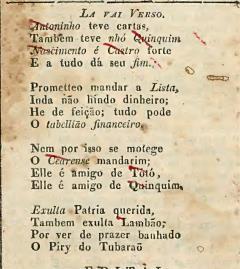 LA VAI VERSO.
Antoninho teve cartas,
Tambem teve nhó Quinquim
Nascimento é Castro forte
E a tudo dá seu fim.
Prometteo mandar a Lista,
Inda não hindo dinheiro;
He de feição; tudo pode
O tabellião financeiro,
Nem por isso se motege
O Cearense mandarim;
Elle é amigo de Totó,
Elle é amigo de Quinquim,
Exulta Patria querida,
Tambem exulta Lambão;
Por ver de prazer banhado
O Piry do Tubaraõ